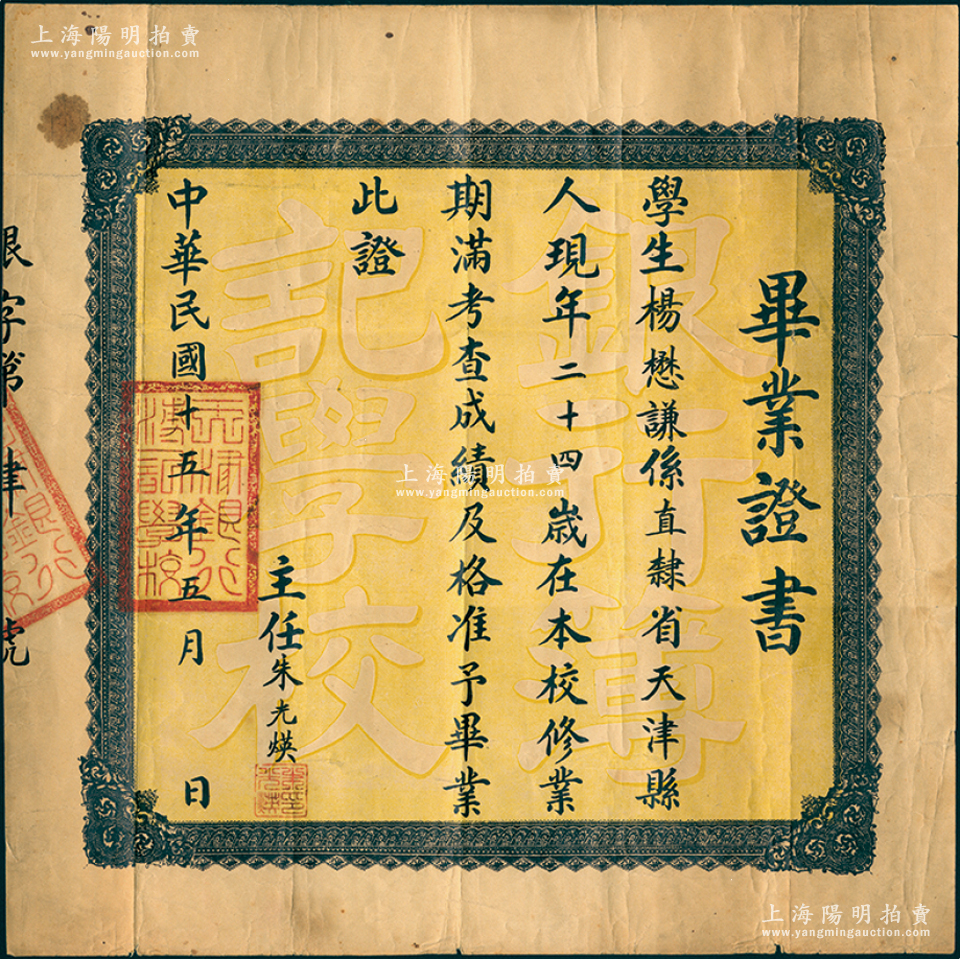 上海陽明拍賣
www.yangmingauction.com
畢業證書
學生楊懋謙係直隸省天津縣
人現年二十四歲在本校修業
期滿考查成績及格准予畢業
此證
主任朱光煐
中華民國十五年五月 日
銀行簿
記學校
天津銀行
簿記學校
字第 津 號
上海陽明拍賣
www.yangmingauction.com
上海陽明拍賣
www.yangmingauction.com